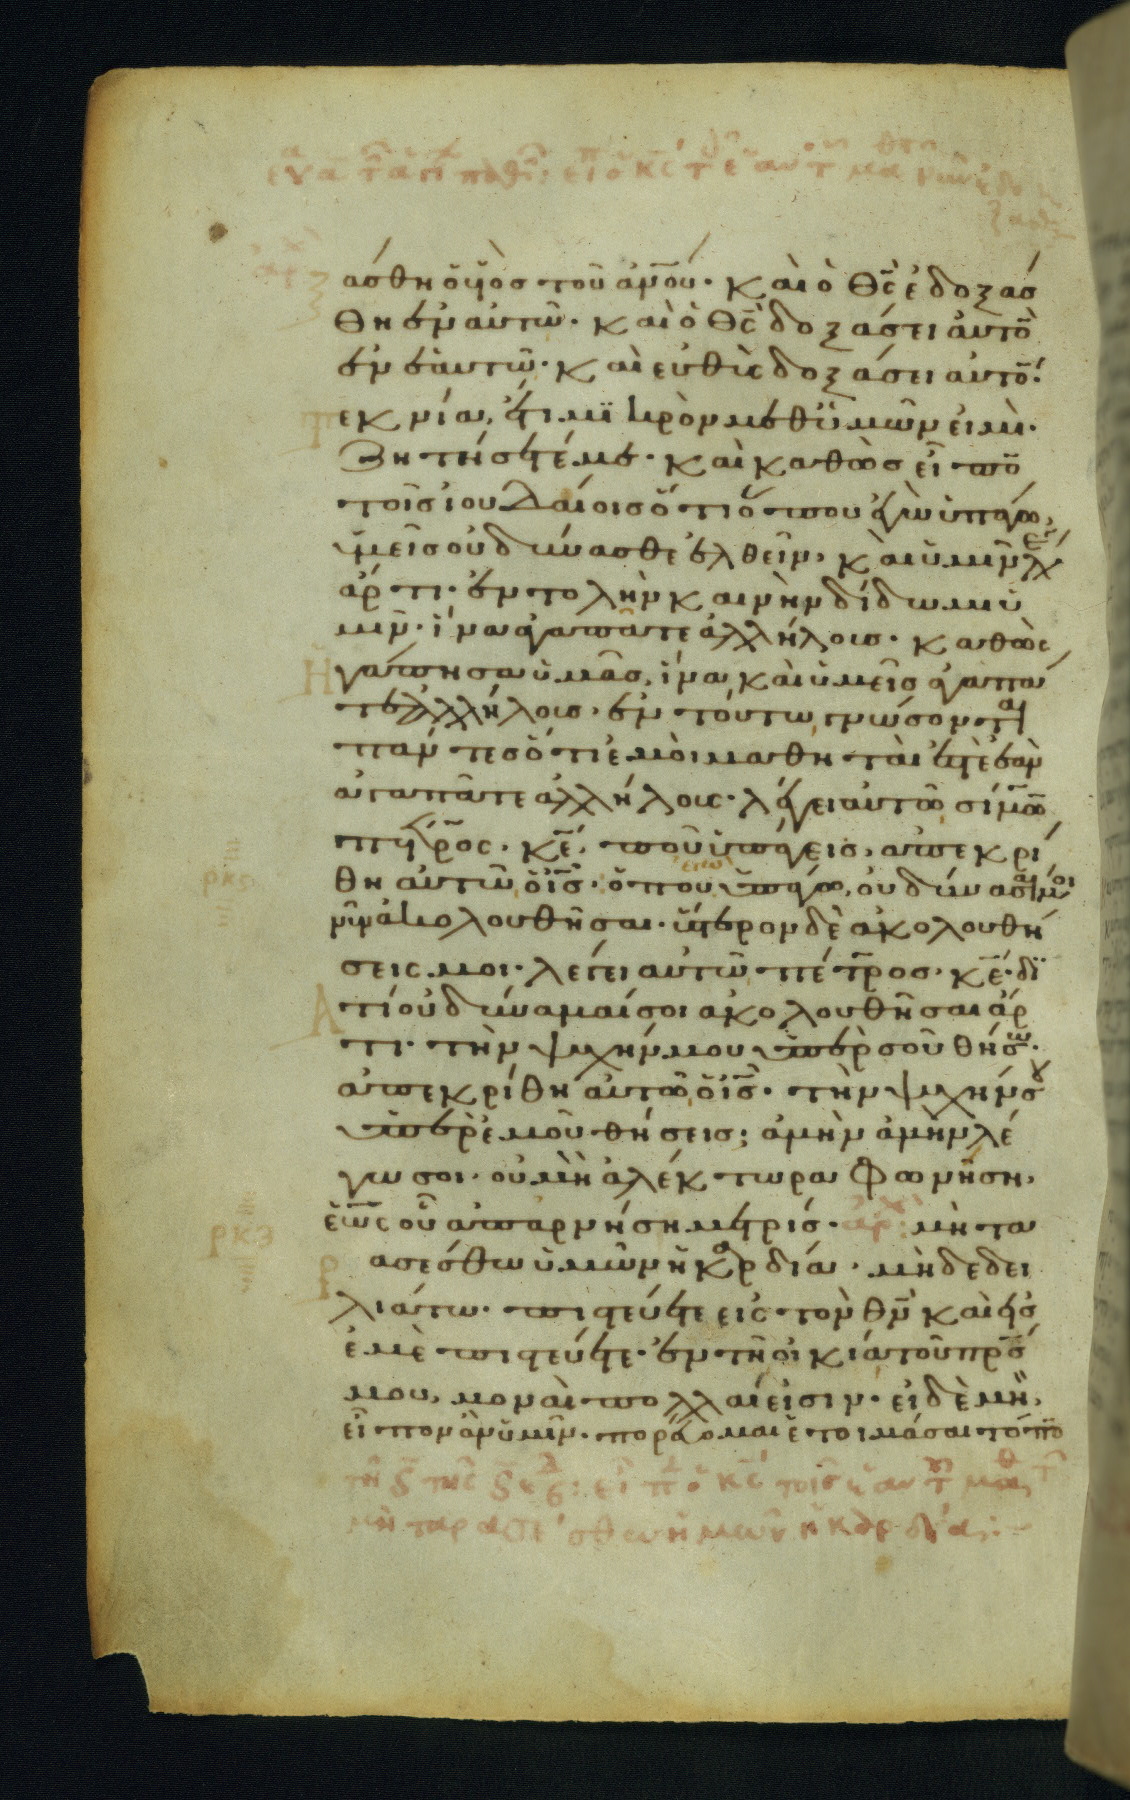 άσθη ὁ υἱὸσ τοῦ ἀν̅ου· καὶ ὁ θς̅ ἐδοξάσ
θη ἐν αυτῶ· καὶ ὁ θς̅ δοξάσει ἀυτὸ
ἐν ἑαυτῶ· καὶ ευθὺς δοξάσει αυτό·
Τεκνία, ἔτι μϊκρὸν μεθ ὑμῶν εἰμὶ·
Ζητήσετέ με· καὶ καθὼσ εἶπο
τοῖσ ἰουδαίοισ ὅτι ὅπου ἐγὼ ὑπάγω,
ὑμεῖσ οὐ δύνασθε ἐλθεῖν, καὶ ὑμῖν λέγ
ἄρτι· ἐντολὴν καινὴν δίδωμι ὑ
μῖν· ἵνα ἀγαπᾶτε ἀλλήλουσ· καθὼς
Ἠγάπησα ὑμᾶσ, ἵνα καὶ ὑμεῖσ ἀγαπᾶ
τε ἀλλήλουσ· ἐν τούτω γνώσονται
πάντεσ ὅτι ἐμοὶ μαθηταὶ ἐστὲ ἐὰν
ἀγαπᾶτε ἀλλήλους· λέγει αυτῶ σίμω
πέτρος· κε̅, ποῦ ὑπάγεισ, ἀπεκρί
θη αυτῶ ὁ ις̅· ὅπου ἐγὼ ὑπάγω, ου δύνασαί μοι
νῦν ἀκολουθῆσαι· ὕστερον δὲ ἀκολουθή
σεις μοι· λέγει αυτῶ πέτρος· κε̅· δϊ
Ατί οὐ δύναμαί σοι ακολουθῆσαι ἄρ
τι· τὴν ψυχήν μου ὑπὲρ σοῦ θήσω·
ἀπεκρίθη αυτῶ ὁ ις̅· τὴν ψυχήν σου
ὑπὲρ ἐμοῦ θήσεισ; ἀμὴν ἀμὴν λέ
γω σοι· ου μὴ ἀλέκτωρα φωνήση,
ἕως οὗ ἀπαρνήση με τρίσ· ἀρχ: μὴ τα
ρκζ
Ρασέσθω ὑμῶν ἡ καρδία· μὴδὲ δει
λιάτω· πιστεύετε εἰς τὸν θν̅ καὶ εἰσ
ἐμὲ πιστεύετε· ἐν τῆ οἰκία τοῦ πρ̅σ
μου, μοναὶ πολλαί εἰσιν· εἰ δὲ μὴ,
εἶπον ἂν ὑμῖν· πορέυομαι ἑτοιμάσαι τόπο
μὴ ταρασσέσθω ὑμῶν ἡ καρδία: